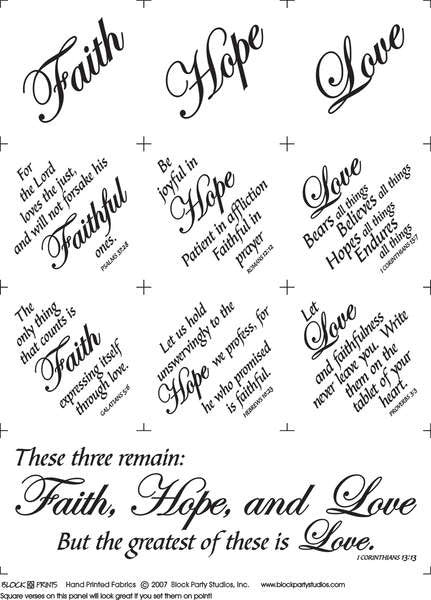 Faith
Hope
Love
For
the Lord
loves the just,
and will not forsake his
Faithful
ones.
PSALMS 37:28
Be
joyful in
Hope
Patient in affliction
Faithful in
prayer
ROMANS 12:12
Love
Bears all things
Believes all things
Hopes all things
Endures
all things
1 CORINTHIANS 13:7
The
only thing
that counts is
Faith
expressing itself
through love.
GALATIANS 5:6
Let us hold
unswervingly to the
Hope we profess, for
he who promised
is faithful.
HEBREWS 10:23
Let
Love
and faithfulness
never leave you. Write
them on the
tablet of your
heart.
PROVERBS 3:3
These three remain:
Faith, Hope, and Love
But the greatest of these is Love.
1 CORINTHIANS 13:13
BLOCK PRINTS Hand Printed Fabrics © 2007 Block Party Studios, Inc. www.blockpartystudios.com
Square verses on this panel will look great if you set them on point!